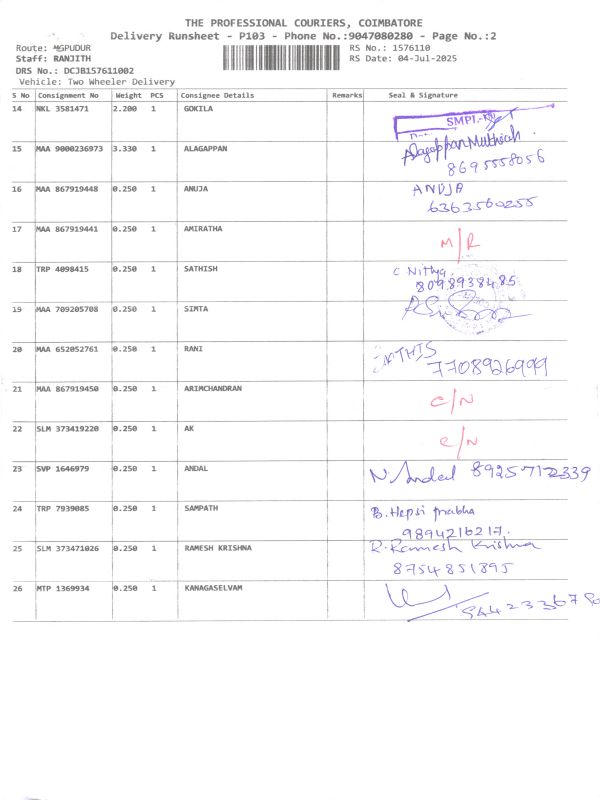 THE PROFESSIONAL COURIERS, COIMBATORE
Delivery Runsheet - P103 - Phone No.:9047080280 - Page No.:2
Route: MGPUDUR RS No.: 1576110
Staff: RANJITH RS Date: 04-Jul-2025
DRS No.: DCJB157611002
Vehicle: Two Wheeler Delivery
S No Consignment No Weight PCS Consignee Details Remarks Seal & Signature
14 NKL 3581471 2.200 1 GOKILA SMPL
15 MAA 9000236973 3.330 1 ALAGAPPAN Alagappan Muthiah
8695558056
16 MAA 867919448 0.250 1 ANUJA ANUJA
6363560255
17 MAA 867919441 0.250 1 AMIRATHA M/R
18 TRP 4098415 0.250 1 SATHISH C Nithya
8098938485
19 MAA 709205708 0.250 1 SIMTA
20 MAA 652052761 0.250 1 RANI
7708926999
21 MAA 867919450 0.250 1 ARIMCHANDRAN C/N
22 SLM 373419220 0.250 1 AK C/N
23 SVP 1646979 0.250 1 ANDAL N. Andal 8925712339
24 TRP 7939085 0.250 1 SAMPATH B. Hepsi prabha
9894216217.
25 SLM 373471026 0.250 1 RAMESH KRISHNA R. Ramesh Krishna
8754851895
26 MTP 1369934 0.250 1 KANAGASELVAM